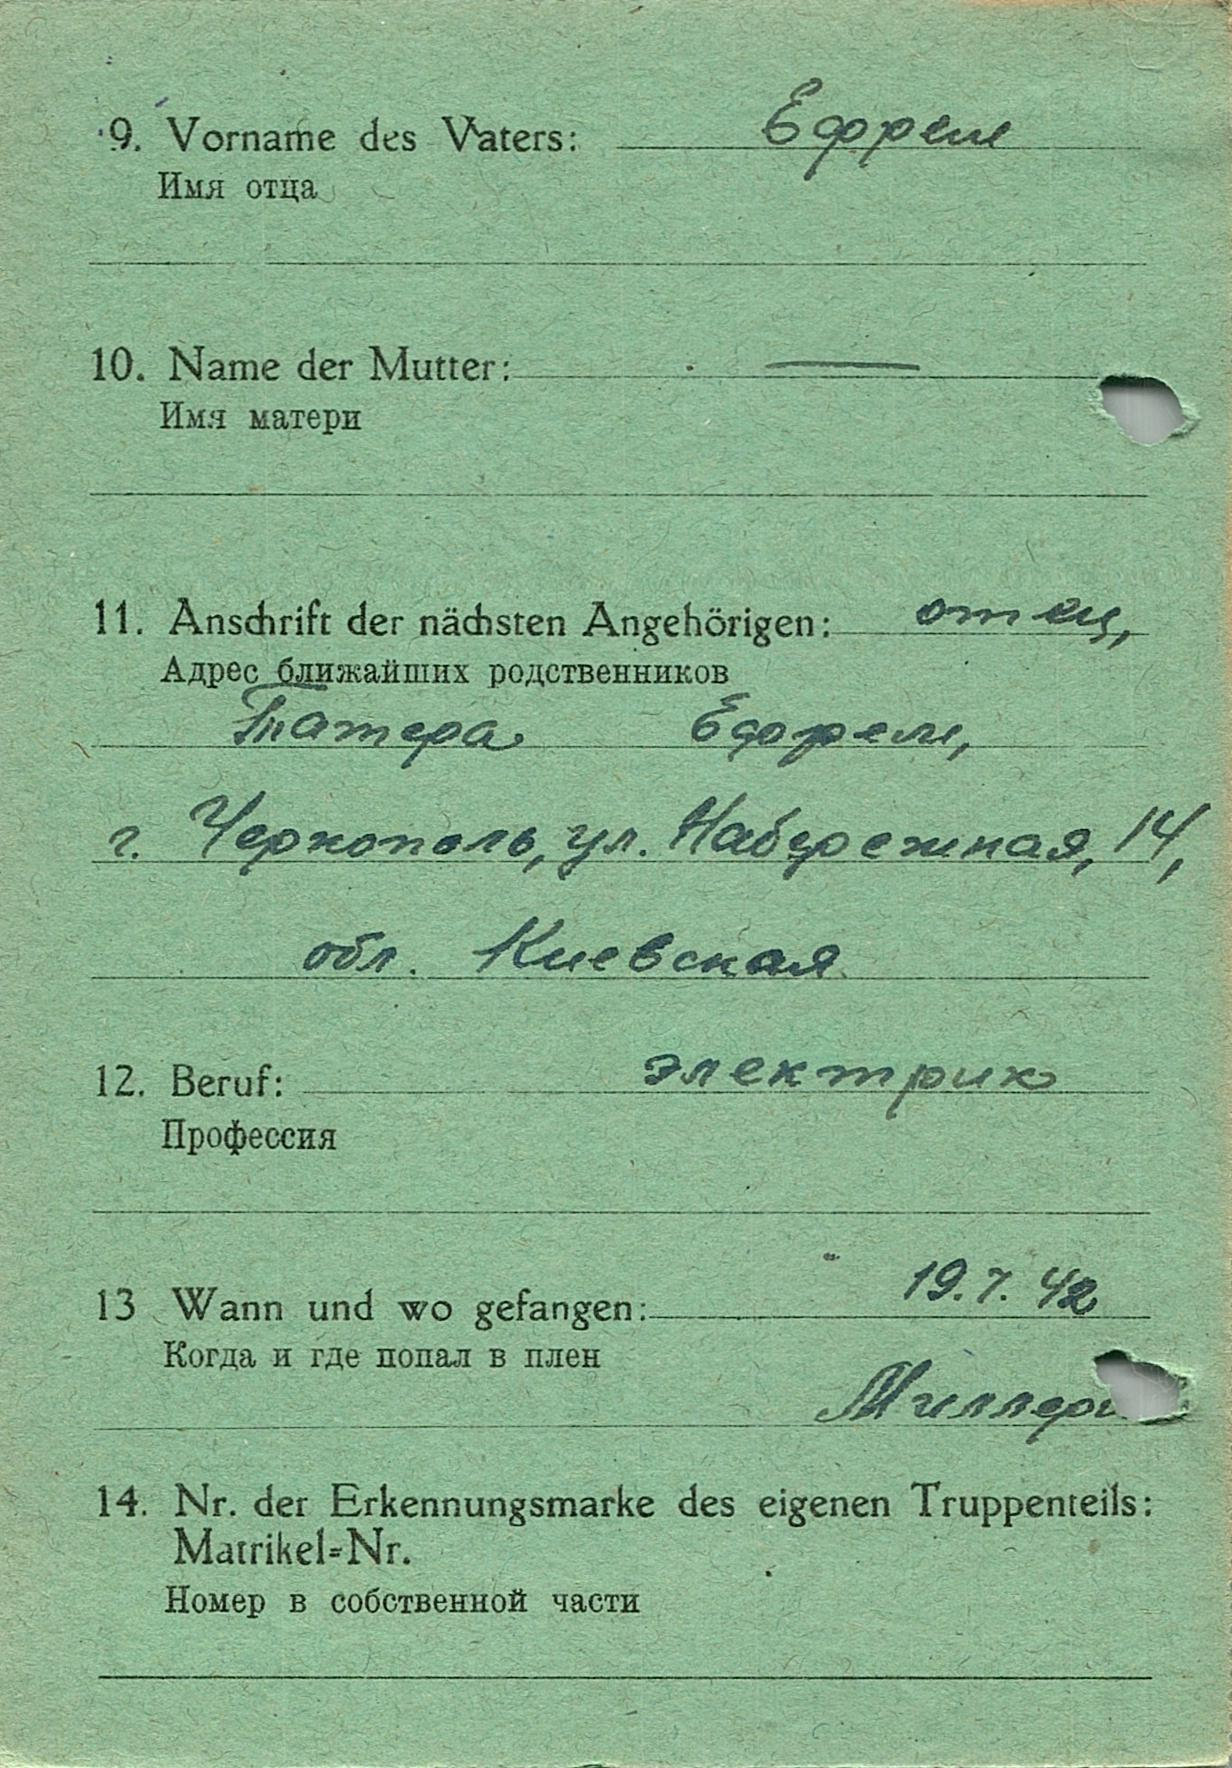 9. Vorname des Vaters: Ефрем
Имя отца
10. Name der Mutter: —
Имя матери
11. Anschrift der nächsten Angehörigen: отец,
Адрес ближайших родственников
Татера Ефрем,
г. Чернополь, ул. Набережная, 14,
обл. Киевская
12. Beruf: электрик
Профессия
13 Wann und wo gefangen: 19.7.42
Когда и где попал в плен
Миллеро
14. Nr. der Erkennungsmarke des eigenen Truppenteils:
Matrikel=Nr.
Номер в собственной части